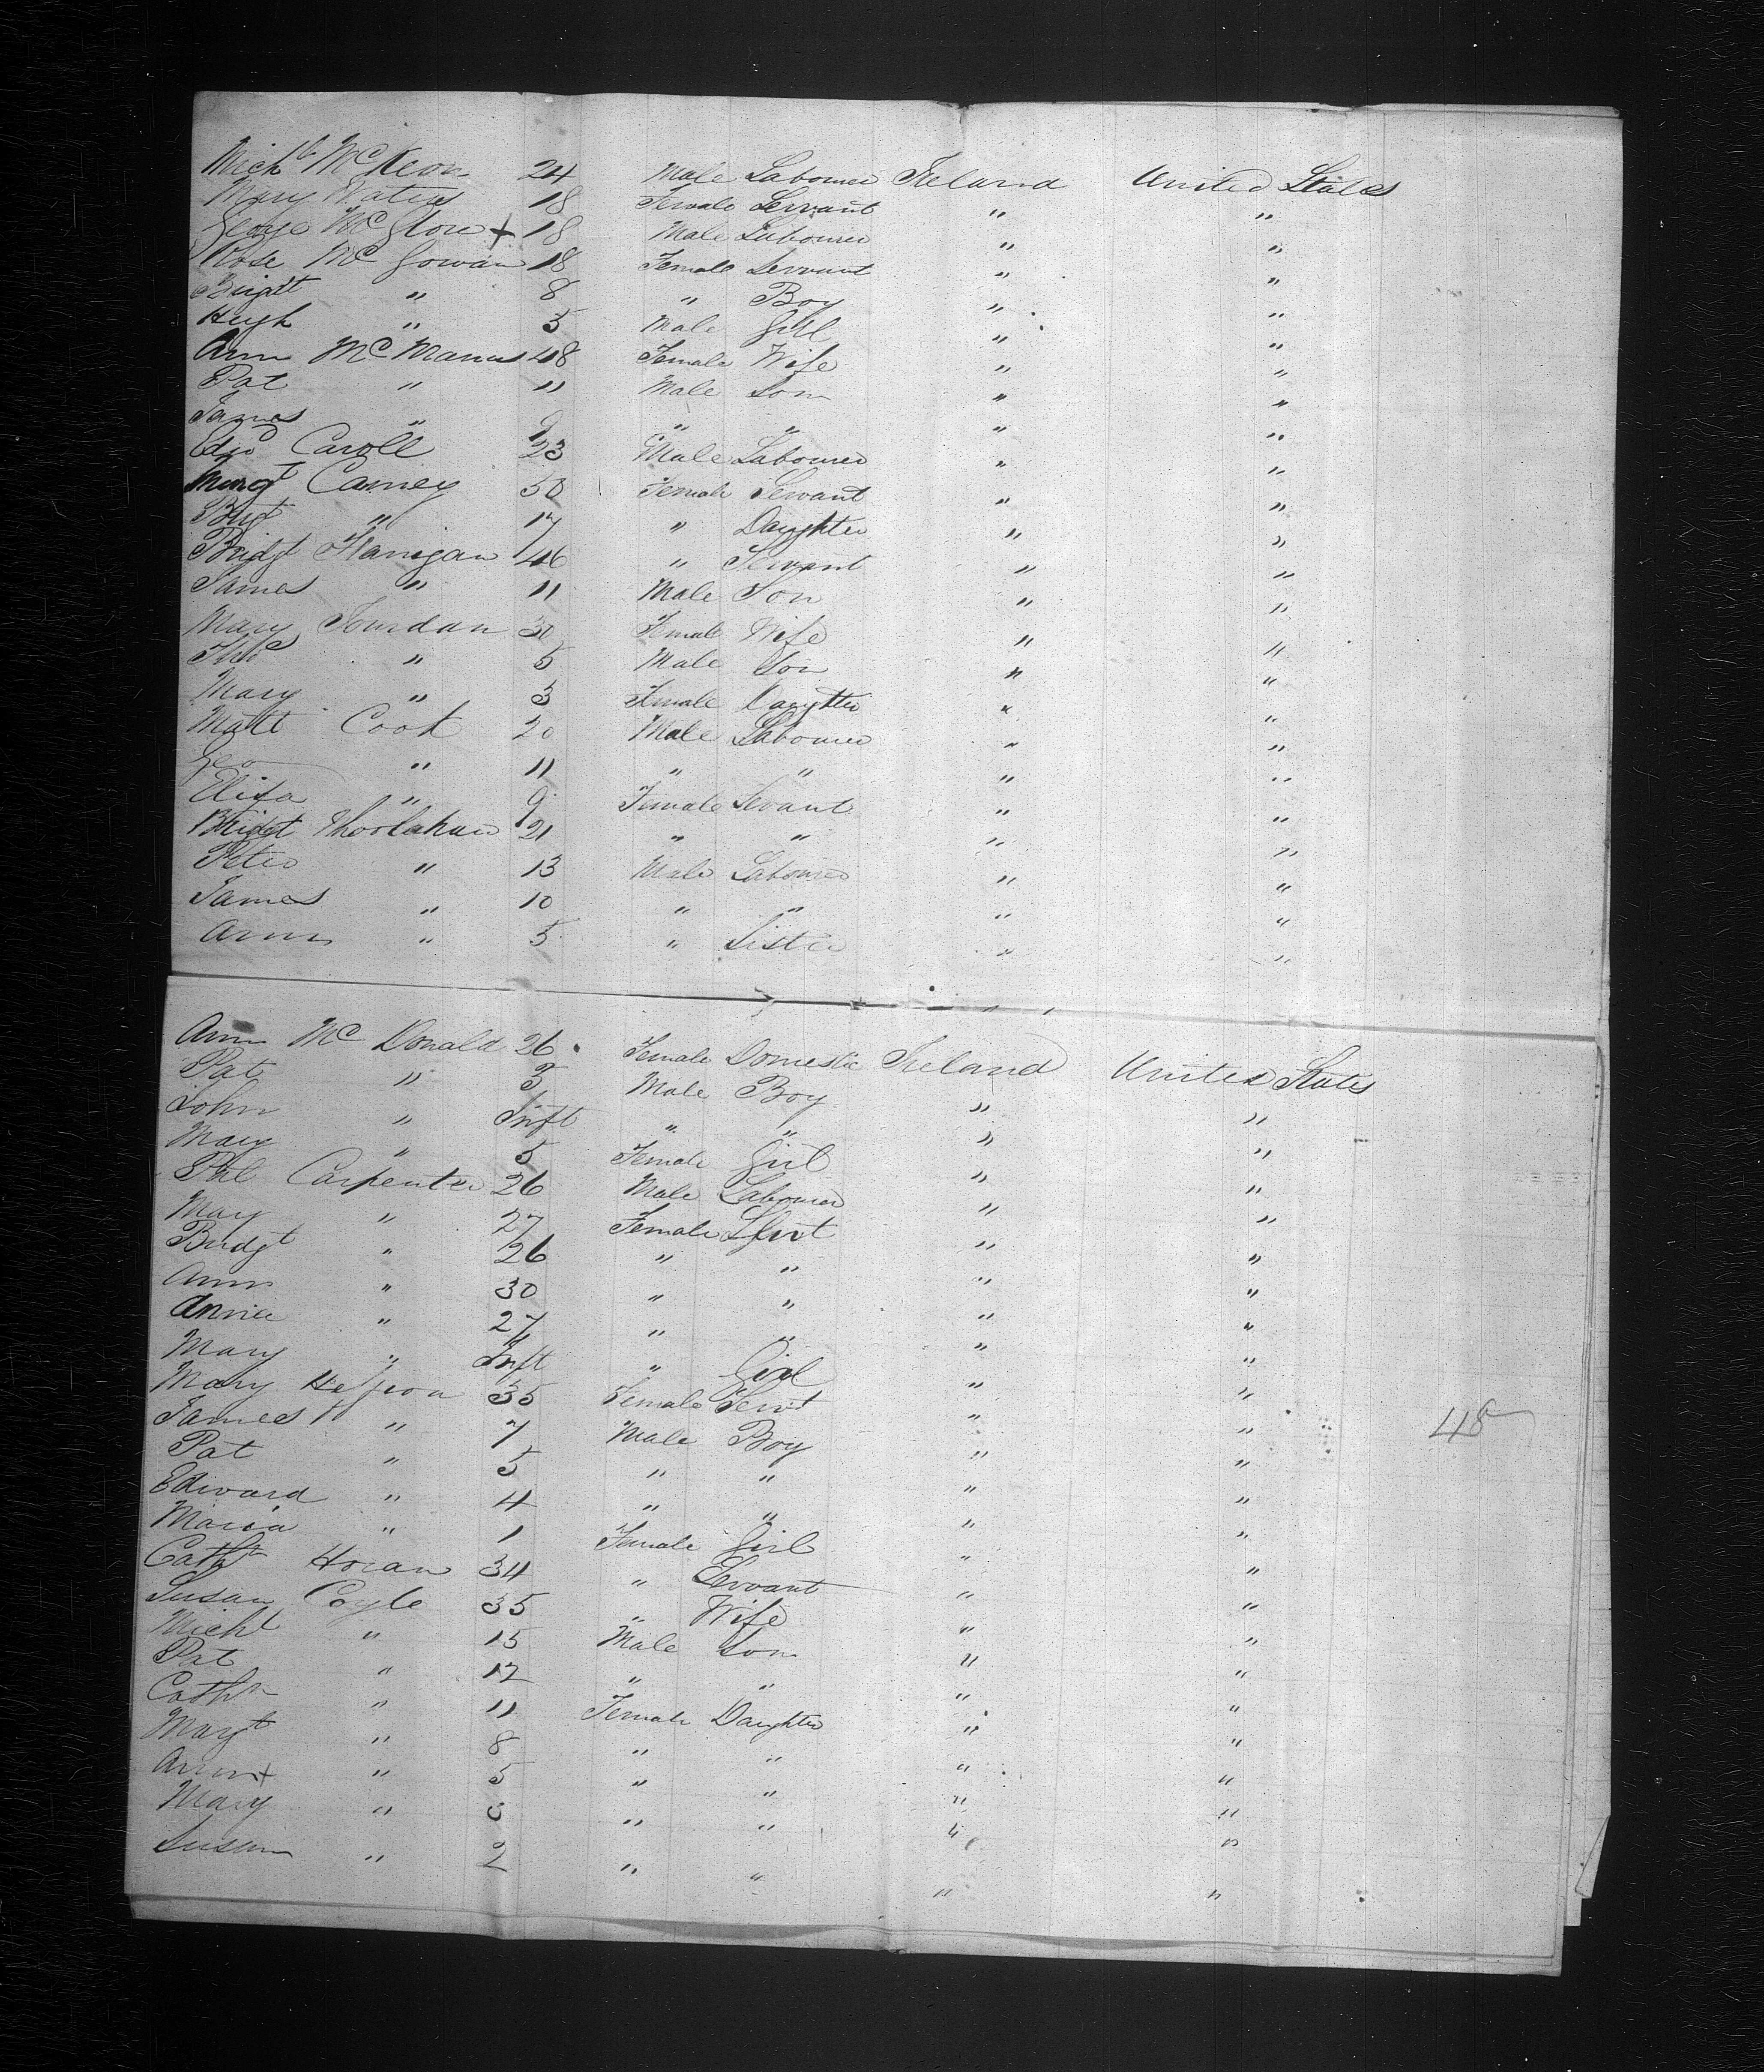 Michl McKeon 24 Male Labourer Ireland United States
Mary Waters 18 Female Servant " "
George McGlone + 18 Male Labourer " "
Rose McGowan 18 Female Servant " "
Bridgt " 8 " Boy " "
Hugh " 5 Male Girl " "
Ann McManus 48 Female Wife " "
Pat " 11 Male Son " "
James " 9 " " " "
Edwd Caroll 23 Male Labourer " "
Margt Carney 50 Female Servant " "
Brigt " 17 " Daughter " "
Bridgt Flanigan 46 " Servant " "
James " 11 Male Son " "
Mary Jourdan 30 Female Wife " "
Thos " 5 Male Son " "
Mary " 3 Female Daughter " "
Matt Cook 20 Male Labourer " "
Geo " 11 " " " "
Eliza " 9 Female Servant " "
Bridgt 21 " " " "
Peter " 13 Male Labourer " "
James " 10 " " " "
Ann " 5 " Sister " "
Ann McDonald 26 Female Domestic Ireland United States
Pat " 3 Male Boy " "
John " Inft " " " "
Mary " 5 Female Girl " "
Pat Carpenter 26 Male Labourer " "
Mary " 27 Female Servt " "
Bridgt " 26 " " " "
Ann " 30 " " " "
Annie " 27 " " " "
Mary " Inft " Girl " "
Mary Heffron 35 Female Servt " "
James " 7 Male Boy " " 48
Pat " 5 " " " "
Edward " 4 " " " "
Maria " 1 Female Girl " "
Cathn Horan 34 " Servant " "
Susan Coyle 35 " Wife " "
Michl " 15 Male Son " "
Pat " 12 " " " "
Cathn " 11 Female Daughter " "
Margt " 8 " " " "
Ann + " 5 " " " "
Mary " 3 " " " "
Susan " 2 " " " "